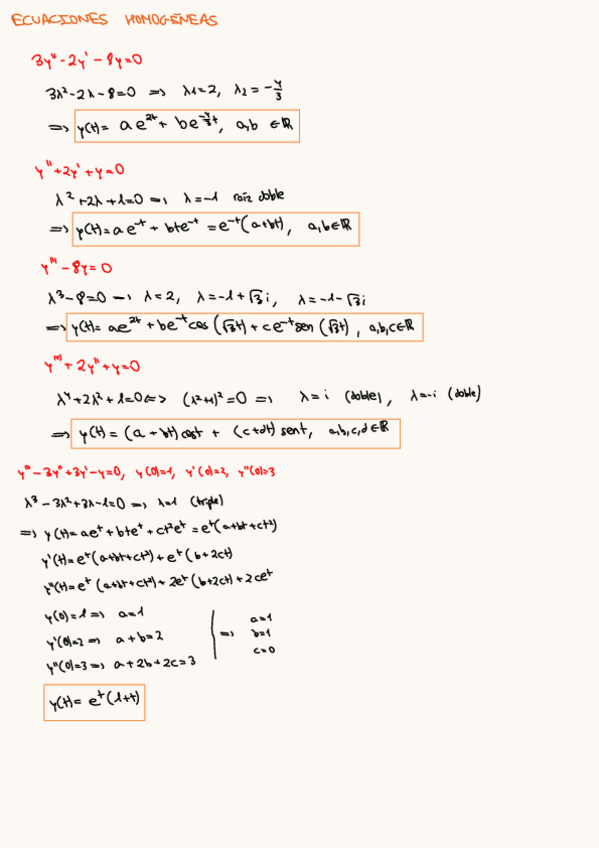 ECUACIONES HOMOGÉNEAS
3y'' - 2y' - 8y = 0
3λ² - 2λ - 8 = 0 => λ1 = 2, λ2 = -4/3
=> y(t) = a e^{2t} + b e^{-4/3 t}, a,b ∈ ℝ
y'' + 2y' + y = 0
λ² + 2λ + 1 = 0 => λ = -1 raíz doble
=> y(t) = a e^{-t} + b t e^{-t} = e^{-t}(a + bt), a,b ∈ ℝ
y''' - 8y = 0
λ³ - 8 = 0 => λ = 2, λ = -1 + √3 i, λ = -1 - √3 i
=> y(t) = a e^{2t} + b e^{-t} cos(√3 t) + c e^{-t} sen(√3 t), a,b,c ∈ ℝ
y'''' + 2y'' + y = 0
λ⁴ + 2λ² + 1 = 0 <=> (λ² + 1)² = 0 => λ = i (doble), λ = -i (doble)
=> y(t) = (a + bt) cos t + (c + dt) sen t, a,b,c,d ∈ ℝ
y''' - 3y'' + 3y' - y = 0, y(0) = 1, y'(0) = 2, y''(0) = 3
λ³ - 3λ² + 3λ - 1 = 0 => λ = 1 (triple)
=> y(t) = a e^t + b t e^t + c t² e^t = e^t (a + bt + ct²)
y'(t) = e^t (a + bt + ct²) + e^t (b + 2ct)
y''(t) = e^t (a + bt + ct²) + 2e^t (b + 2ct) + 2c e^t
y(0) = 1 => a = 1
y'(0) = 2 => a + b = 2
y''(0) = 3 => a + 2b + 2c = 3
=> a = 1
b = 1
c = 0
y(t) = e^t (1 + t)